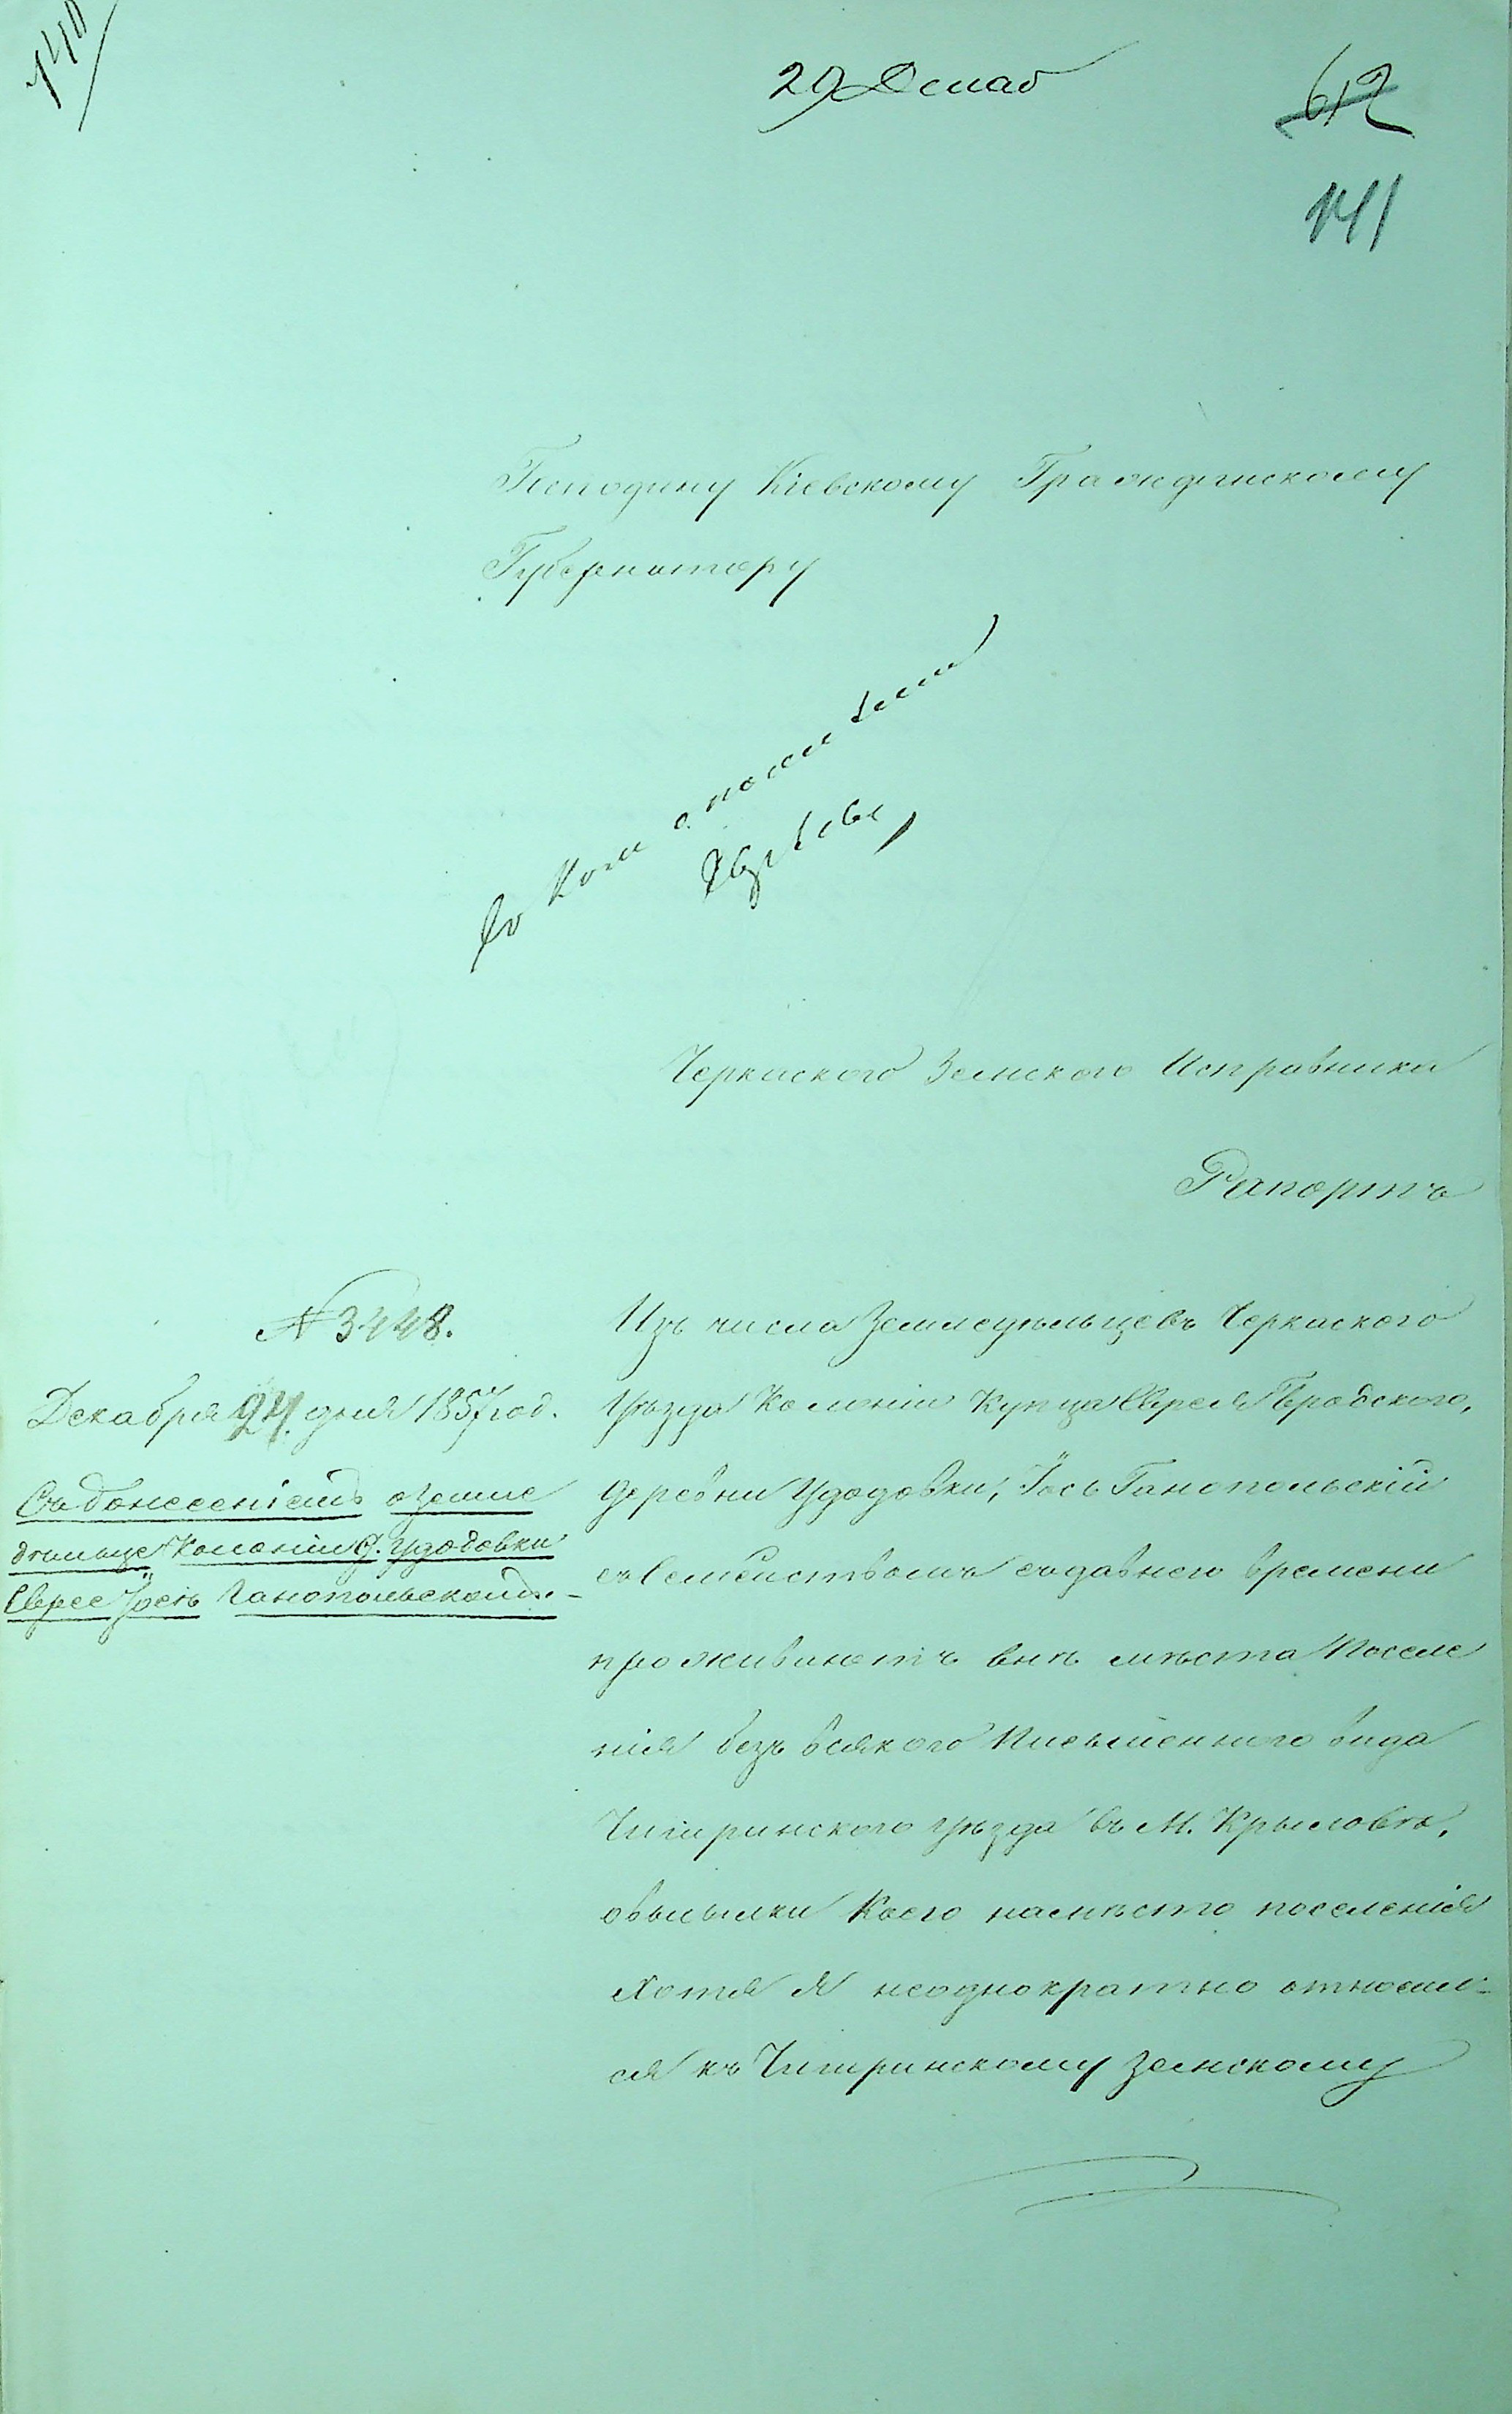 140
29 Декаб
612
141
Господину Кіевскому Гражданскому
Губернатору
Черкаского Земскаго Исправника
Рапортъ
№ 3448.
Декабря 24. дня 1857 год.
Съ донесеніемъ о Земле
дѣльце Колоніи д. Удодовки
Еврее Іось Ганопольскомъ.-
Изъ числа Земледѣльцевъ Черкаского
Уѣзда Колоніи Купца Еврея Бродского,
деревни Удодовки, Іось Ганопольскій
съ Семействомъ съ давнего времени
проживаетъ внѣ мѣста Поселе
нія безъ всякого Письменного вида
Чигиринского уѣзда въ М. Крыловѣ,
о высылки Коего на мѣсто поселенія
Хотя я неоднократно относил-
ся къ Чигиринскому Земскому